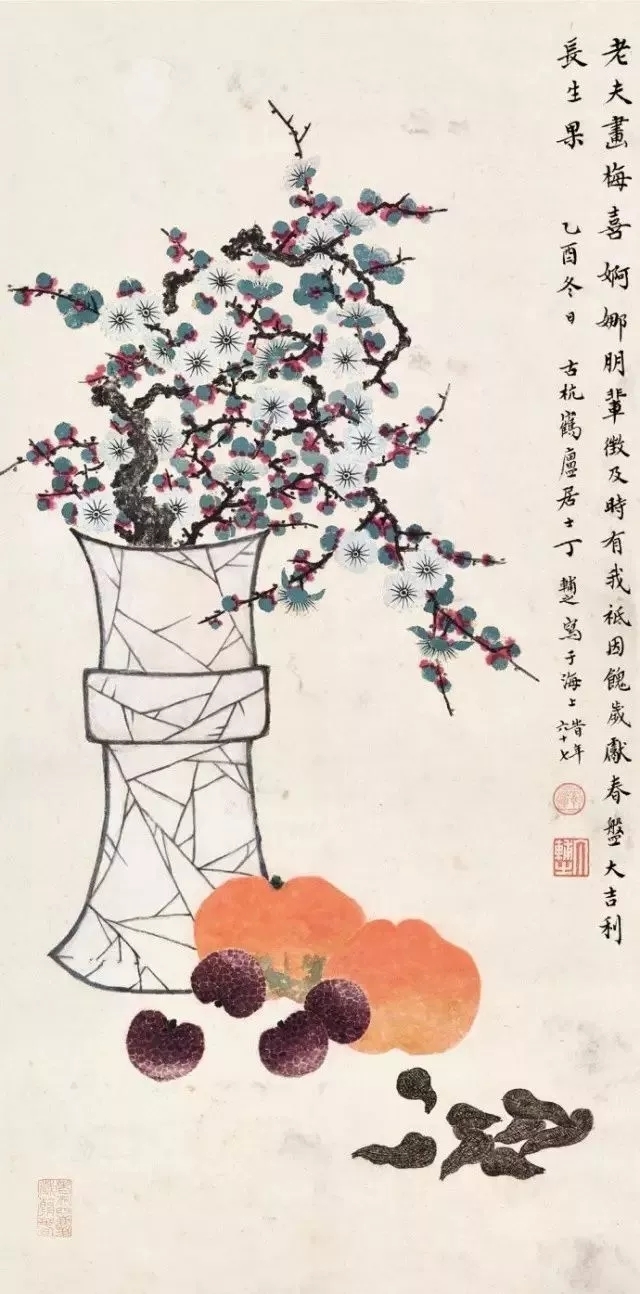 老夫畫梅喜婀娜朋輩徵及時有我袛因餽歲獻春盤大吉利
長生果 乙酉冬日 古杭鶴廬居士丁輔之寫于海上皆年六十七